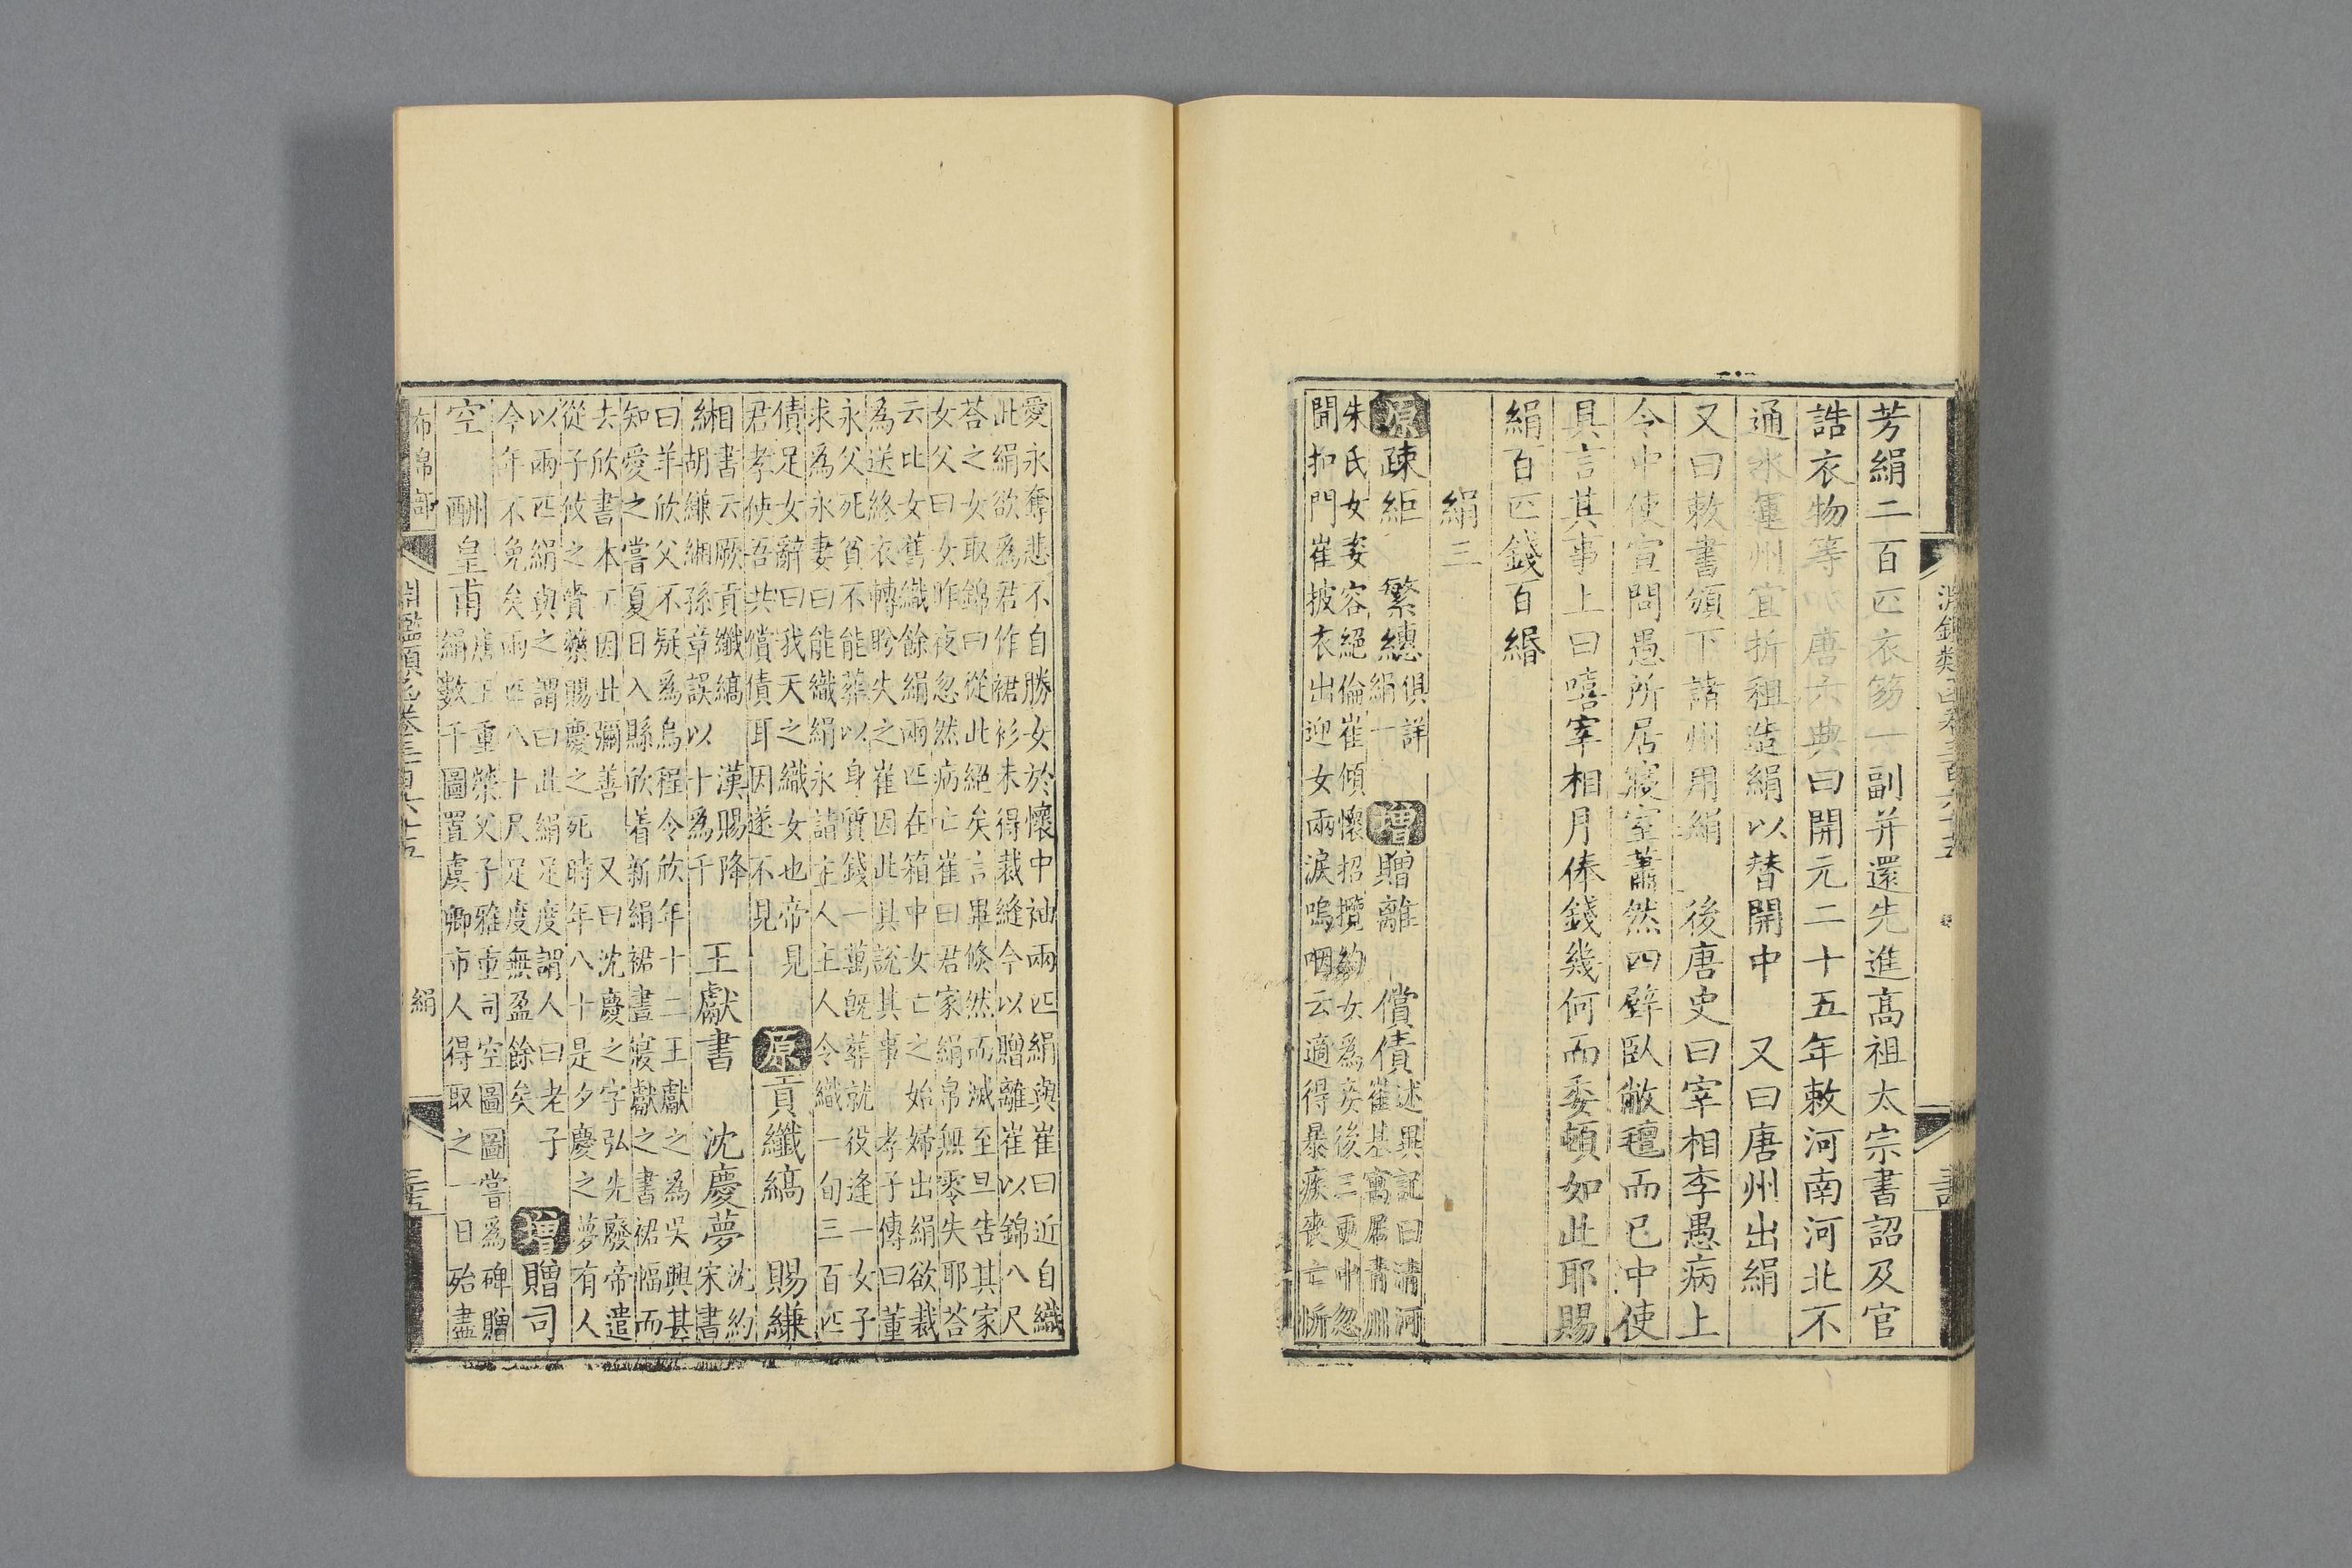 芳絹二百匹衣笏一副并還先進高祖太宗書詔及官
誥衣物等 唐六典曰開元二十五年敕河南河北不
通水運州宜折租造絹以替關中 又曰唐州出絹
又曰敕書頒下諸州用絹 後唐史曰宰相李愚病上
令中使宣問愚所居寢室蕭然四壁臥敝氊而已中使
具言其事上曰嘻宰相月俸錢幾何而委頓如此耶賜
絹百匹錢百緡
絹三
原疎絍 繁總俱詳絹一 增贈離 償債述異記曰清河崔基寓居青州
朱氏女姿容絕倫崔傾懷招攬約女為妾後三更中忽
聞扣門崔披衣出迎女兩淚嗚咽云適得暴疾喪亡忻
愛永奪悲不自勝女於懷中袖兩匹絹與崔曰近自織
此絹欲為君作裙衫未得裁縫今以贈離崔以錦八尺
荅之女取錦曰從此絕矣言畢倏然而滅至旦告其家
女父曰女昨夜忽然病亡崔曰君家絹帛無零失耶荅
云此女舊織餘絹兩匹在箱中女亡之始婦出絹欲裁
為送終衣轉盻失之崔因此具說其事 孝子傳曰董
永父死貧不能葬以身質錢一萬旣葬就役逢一女子
求為永妻曰能織絹永詣主人主人令織一旬三百匹
債足女辭曰我天之織女也帝見
君孝使吾共償債耳因遂不見
原貢纖縞 賜縑
緗書云厥貢纖縞 漢賜降
胡縑緗孫章誤以十為千
王獻書 沈慶夢沈約宋書
曰羊欣父不疑為烏程令欣年十二王獻之為吳興甚
知愛之嘗夏日入縣欣着新絹裙晝寢獻之書裙幅而
去欣書本工因此彌善 又曰沈慶之字弘先廢帝遣
從子攸之賫藥賜慶之死時年八十是夕慶之夢有人
以兩匹絹與之謂曰此絹足度謂人曰老子
今年不免矣兩匹八十尺足度無盈餘矣
增贈司
空 酬皇甫唐王重榮父子雅重司空圖圖嘗為碑贈
絹數千圖置虞卿市人得取之一日殆盡
布帛部 淵鑑類函卷三百六十五 絹 三五